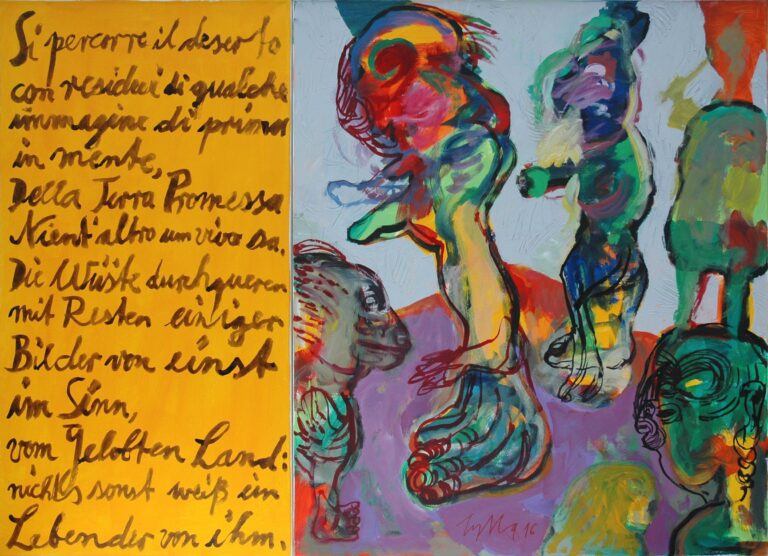 Si percorre il deserto
con residui di qualche
immagine di prima
in mente,
Della Terra Promessa
Nient'altro un vivo sa.
Die Wüste durchqueren
mit Resten einiger
Bilder von einst
im Sinn,
vom Gelobten Land:
nichts sonst weiß ein
Lebender von ihm.
16